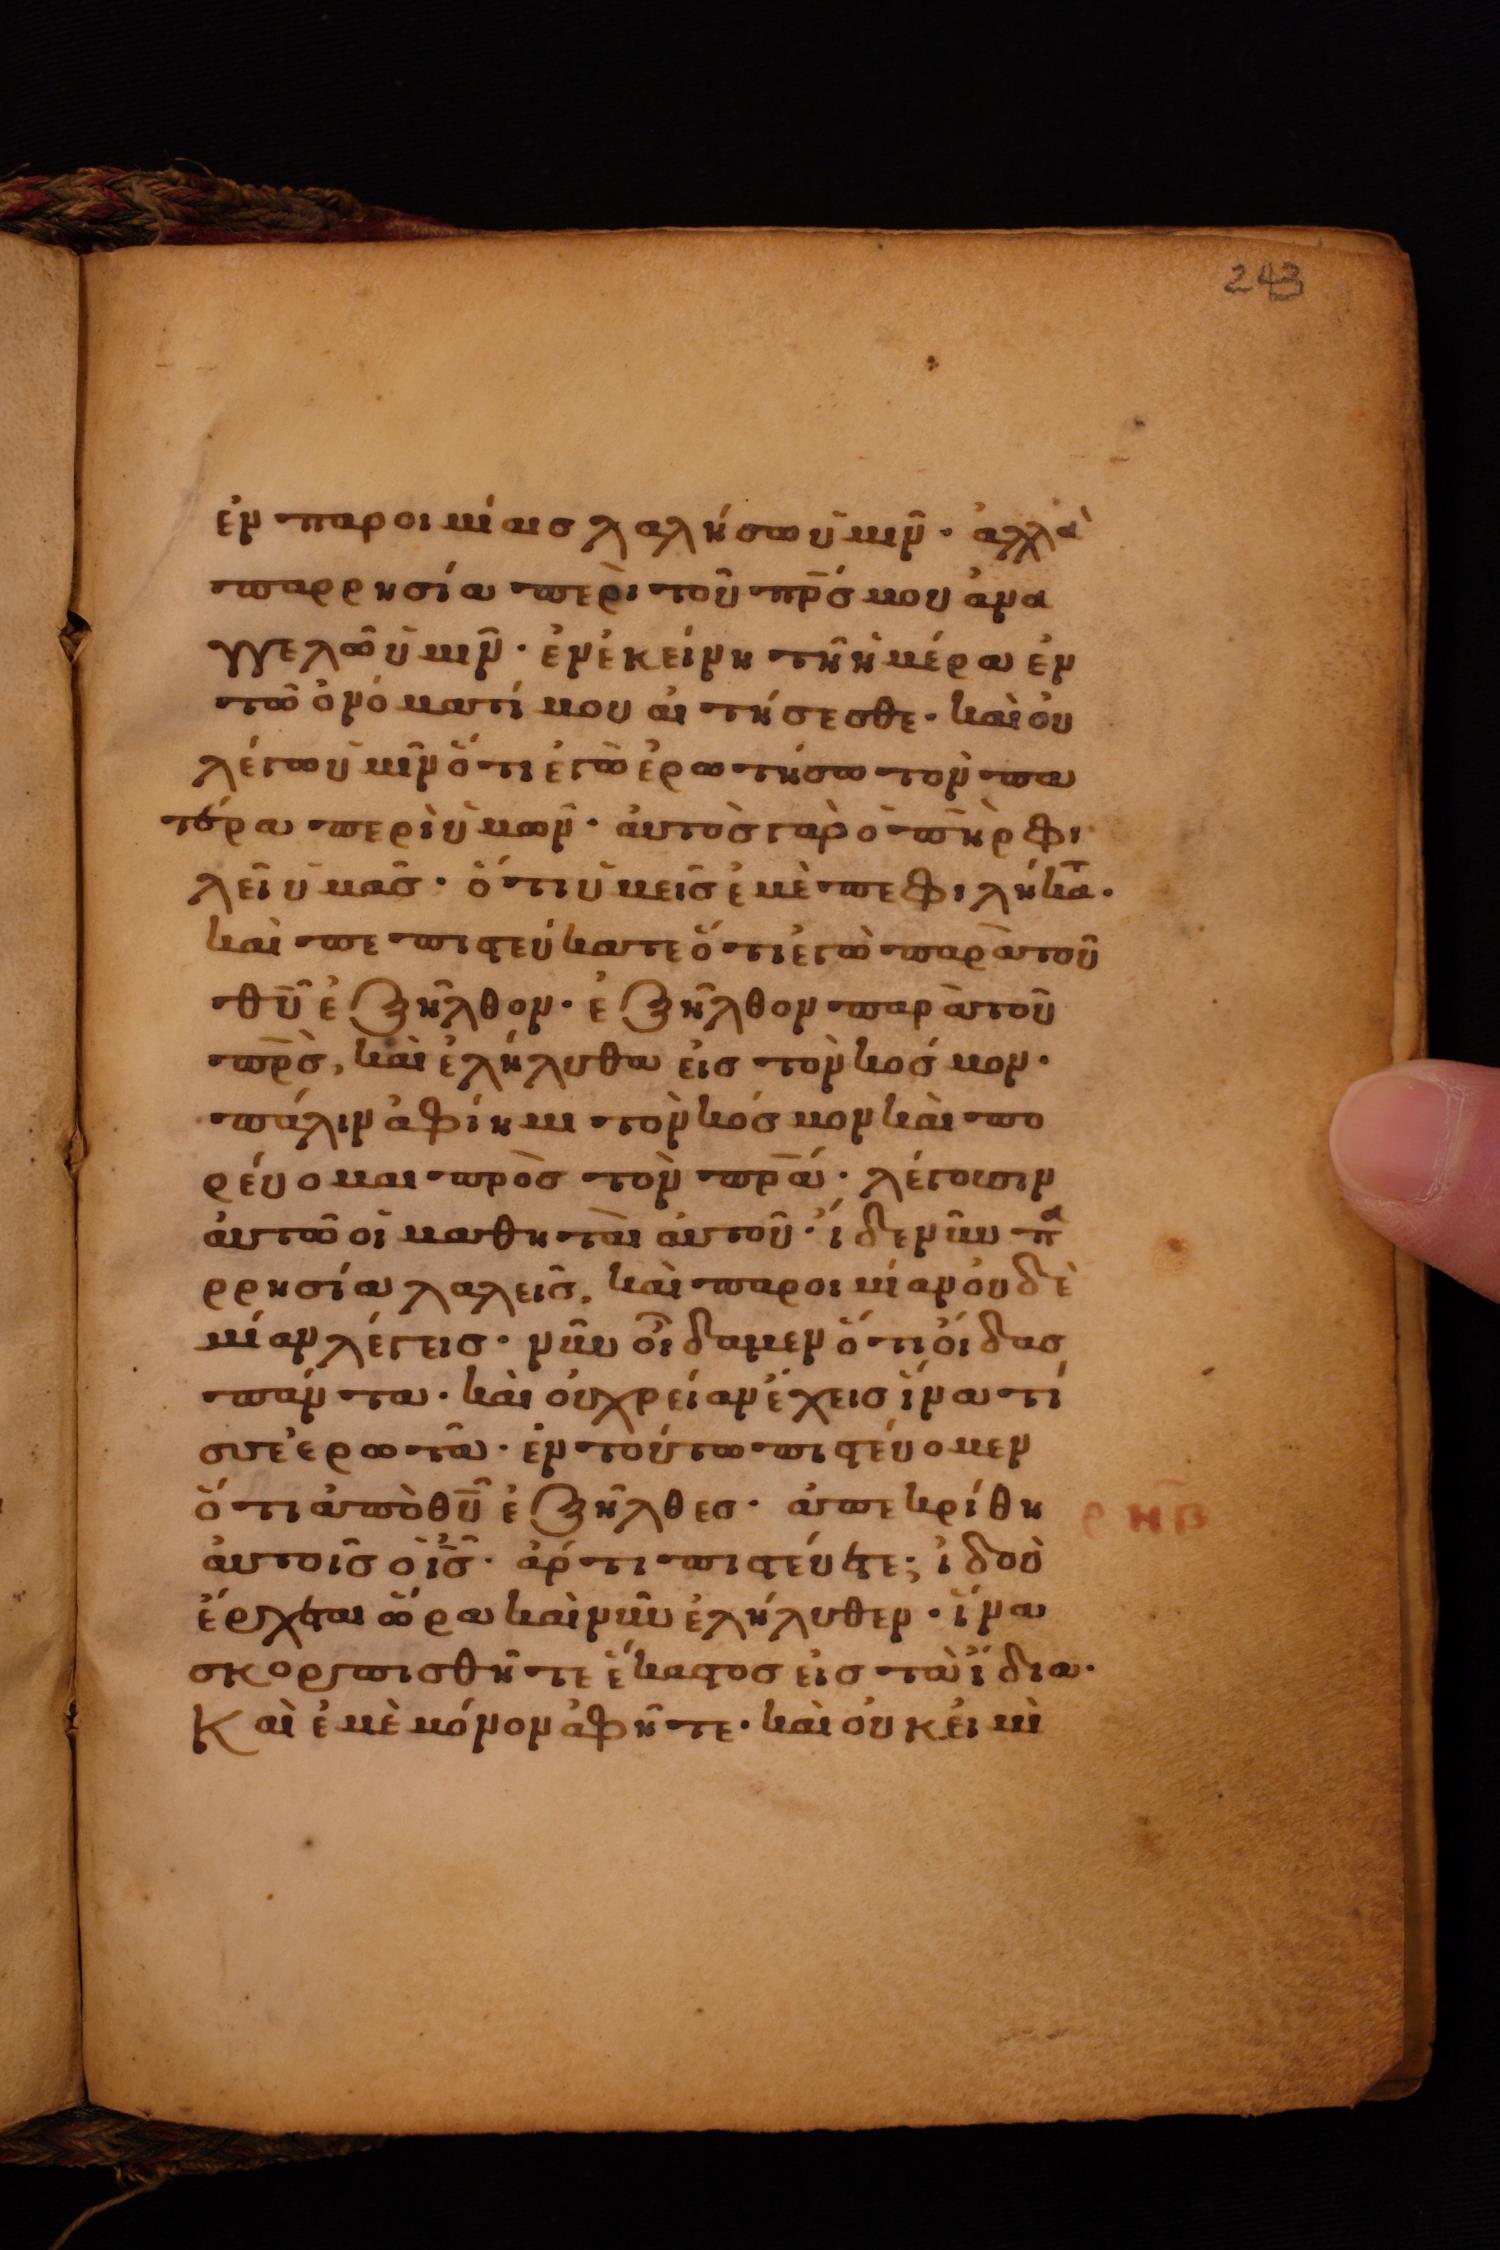 243
ἐν παροιμίαις λαλήσω ὑμῖν· ἀλλὰ
παρρησία περὶ τοῦ πρ̅ς μου ἀνα
γγελῶ ὑμῖν· ἐν ἐκείνη τῆ ἡμέρα ἐν
τῶ ὀνόματί μου αἰτήσεσθε· καὶ οὐ
λέγω ὑμῖν ὅτι ἐγὼ ἐρωτήσω τὸν πα
τέρα περὶ ὑμῶν· ἀυτὸς γὰρ ὁ π̅ὴρ φι
λεῖ ὑμᾶς· ὅτι ὑμεῖς ἐμὲ πεφιλήκατ·
καὶ πεπιστεύκατε ὅτι ἐγὼ παρὰ τοῦ
θ̅υ ἐξῆλθον· ἐξῆλθον παρὰ τοῦ
πρ̅ς, καὶ ἐλήλυθα εἰς τὸν κόσμον·
πάλιν ἀφίημι τὸν κόσμον καὶ πο
ρεύομαι πρὸς τὸν πρ̅α· λέγουσιν
ἀυτῶ οἱ μαθηταὶ ἀυτοῦ· ἴδε νῦν πα
ρρησία λαλεῖς, καὶ παροιμίαν οὐδε
μίαν λέγεις· νῦν οἴδαμεν ὅτι οἶδας
πάντα· καὶ οὐ χρείαν ἔχεις ἵνα τί
σὲ ἐρωτᾶ· ἐν τούτω πιστεύομεν
ὅτι ἀπὸ θ̅υ ἐξῆλθες· ἀπεκρίθη
ἀυτοῖς ὁ ι̅ς· ἄρτι πιστεύετε; ἰδοὺ
ἔρχεται ὥρα καὶ νῦν ἐλήλυθεν· ἵνα
σκορπισθῆτε ἕκαστος εἰς τὰ ἴδια·
Καὶ ἐμὲ μόνον ἀφῆτε· καὶ οὐκ εἰμὶ
ρν̅β